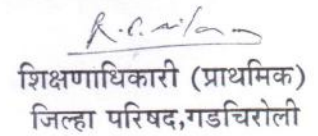 शिक्षणाधिकारी (प्राथमिक)
जिल्हा परिषद,गडचिरोली